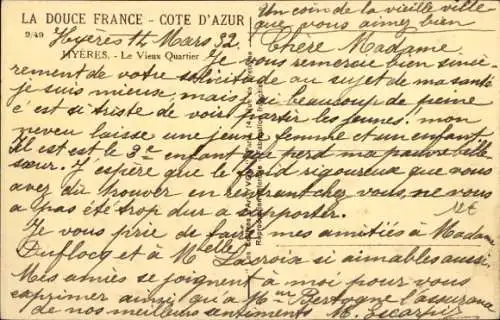 LA DOUCE FRANCE - COTE D'AZUR
Un coin de la vieille ville
que vous aimez bien
9/49 Hyères 14 Mars 32
HYÈRES. - Le Vieux Quartier
Chère Madame
Je vous remercie bien sincè-
rement de votre sollicitude au sujet de ma santé
je suis mieux mais j'ai beaucoup de peine
c'est si triste de voir partir les jeunes. mon
neveu laisse une jeune femme et un enfant
Il est est le 3e enfant que perd ma pauvre belle
sœur. J'espère que le froid rigoureux que vous
avez dû trouver en rentrant chez vous, ne vous
a pas été trop dur à supporter.
Je vous prie de faire mes amitiés à Madame
Duflocq et à Melle Lacroix si aimables aussi.
Mes amies se joignent à moi pour vous
exprimer ainsi qu'à Mme Bertogne l'assurance
de nos meilleurs sentiments M.